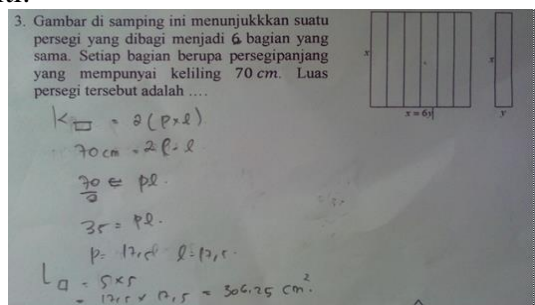 3. Gambar di samping ini menunjukkkan suatu
persegi yang dibagi menjadi 6 bagian yang
sama. Setiap bagian berupa persegipanjang
yang mempunyai keliling 70 cm. Luas
persegi tersebut adalah ....
x
x = 6y
x
y
K▭ = 2(p×l)
70 cm = 2 p·l
70/2 = pl.
35 = pl.
p = 17,5 l = 17,5.
L□ = s×s
= 17,5 × 17,5 = 306,25 cm².